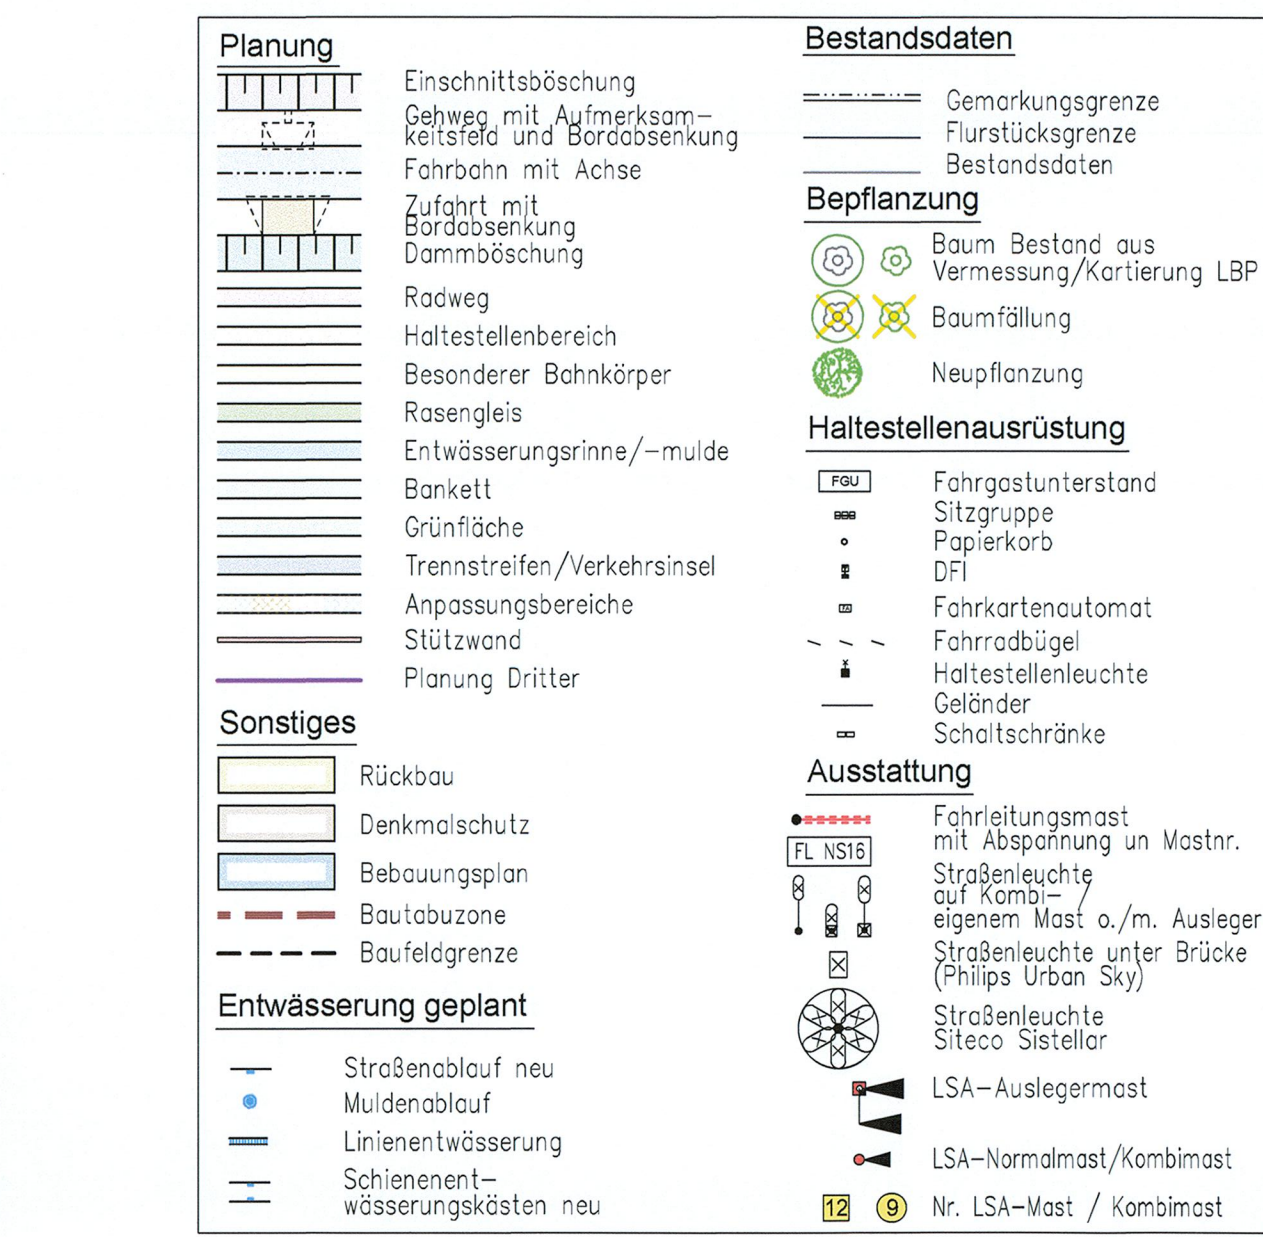 Planung
Einschnittsböschung
Gehweg mit Aufmerksam-
keitsfeld und Bordabsenkung
Fahrbahn mit Achse
Zufahrt mit
Bordabsenkung
Dammböschung
Radweg
Haltestellenbereich
Besonderer Bahnkörper
Rasengleis
Entwässerungsrinne/-mulde
Bankett
Grünfläche
Trennstreifen/Verkehrsinsel
Anpassungsbereiche
Stützwand
Planung Dritter
Sonstiges
Rückbau
Denkmalschutz
Bebauungsplan
Bautabuzone
Baufeldgrenze
Entwässerung geplant
Straßenablauf neu
Muldenablauf
Linienentwässerung
Schienenent-
wässerungskästen neu
Bestandsdaten
Gemarkungsgrenze
Flurstücksgrenze
Bestandsdaten
Bepflanzung
Baum Bestand aus
Vermessung/Kartierung LBP
Baumfällung
Neupflanzung
Haltestellenausrüstung
FGU Fahrgastunterstand
Sitzgruppe
Papierkorb
DFI
Fahrkartenautomat
Fahrradbügel
Haltestellenleuchte
Geländer
Schaltschränke
Ausstattung
Fahrleitungsmast
mit Abspannung un Mastnr.
FL NS16
Straßenleuchte
auf Kombi- /
eigenem Mast o./m. Ausleger
Straßenleuchte unter Brücke
(Philips Urban Sky)
Straßenleuchte
Siteco Sistellar
LSA-Auslegermast
LSA-Normalmast/Kombimast
12 9 Nr. LSA-Mast / Kombimast